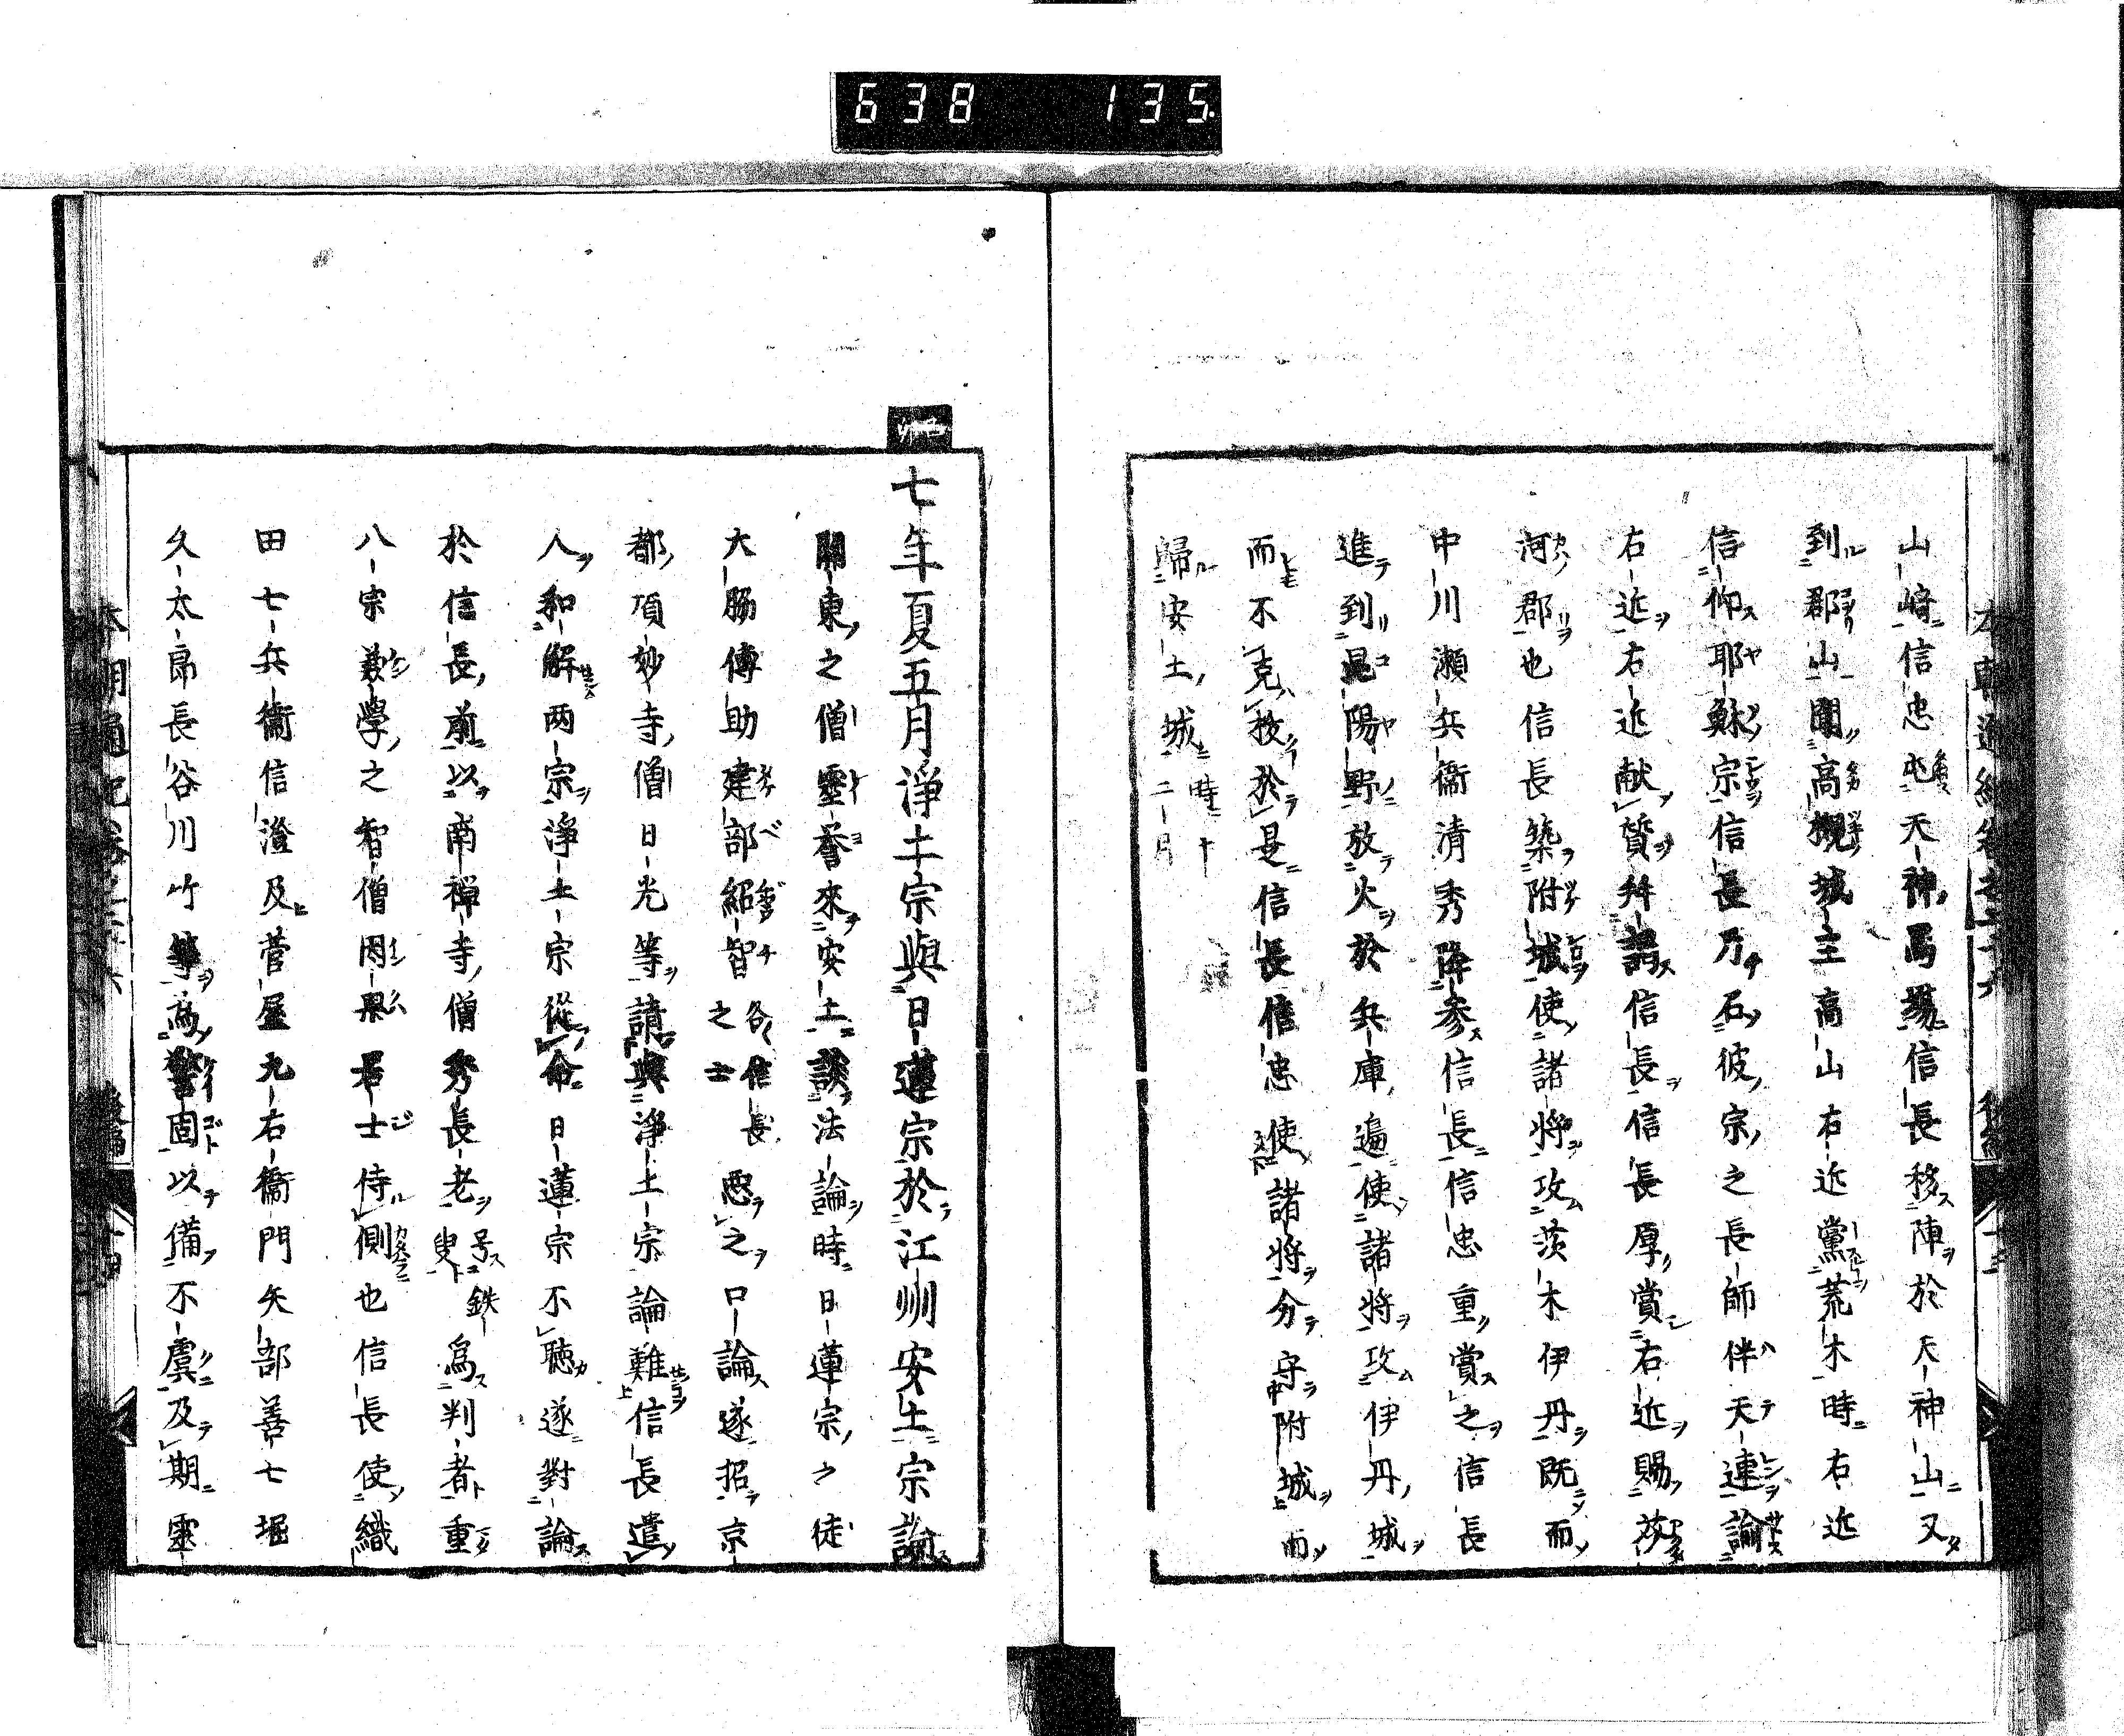 638 135
山﨑信忠屯天神馬塲信長移陣於天神山又
到郡山聞高槻城主高山右近黨荒木時右近
信仰耶穌宗信長乃召彼宗之長師伴天連諭
右近右近献貭拜謁信長信長厚賞右近賜芥
河郡也信長築附城使諸將攻茨木伊丹既而
中川瀬兵衞清秀降参信長信忠重賞之信長
進到昆陽野放火於兵庫遍使諸將攻伊丹城
而不克役於是信長信忠使諸將分守附城而
歸安土城時十二月
七年夏五月淨土宗與日蓮宗於江州安土宗論
關東之僧靈譽來安土談法論時日蓮宗之徒
大脇傳助建部紹智各信長之士惡之口論遂招京
都頂妙寺僧日光等請與淨土宗論難信長遣
人和解两宗淨土宗從命日蓮宗不聽遂對論
於信長前以南禅寺僧秀長老号鉄叟爲判者重
八宗兼學之智僧因果居士侍側也信長使織
田七兵衞信澄及菅屋九右衞門矢部善七堀
久太郎長谷川竹等爲警固以備不虞及期靈